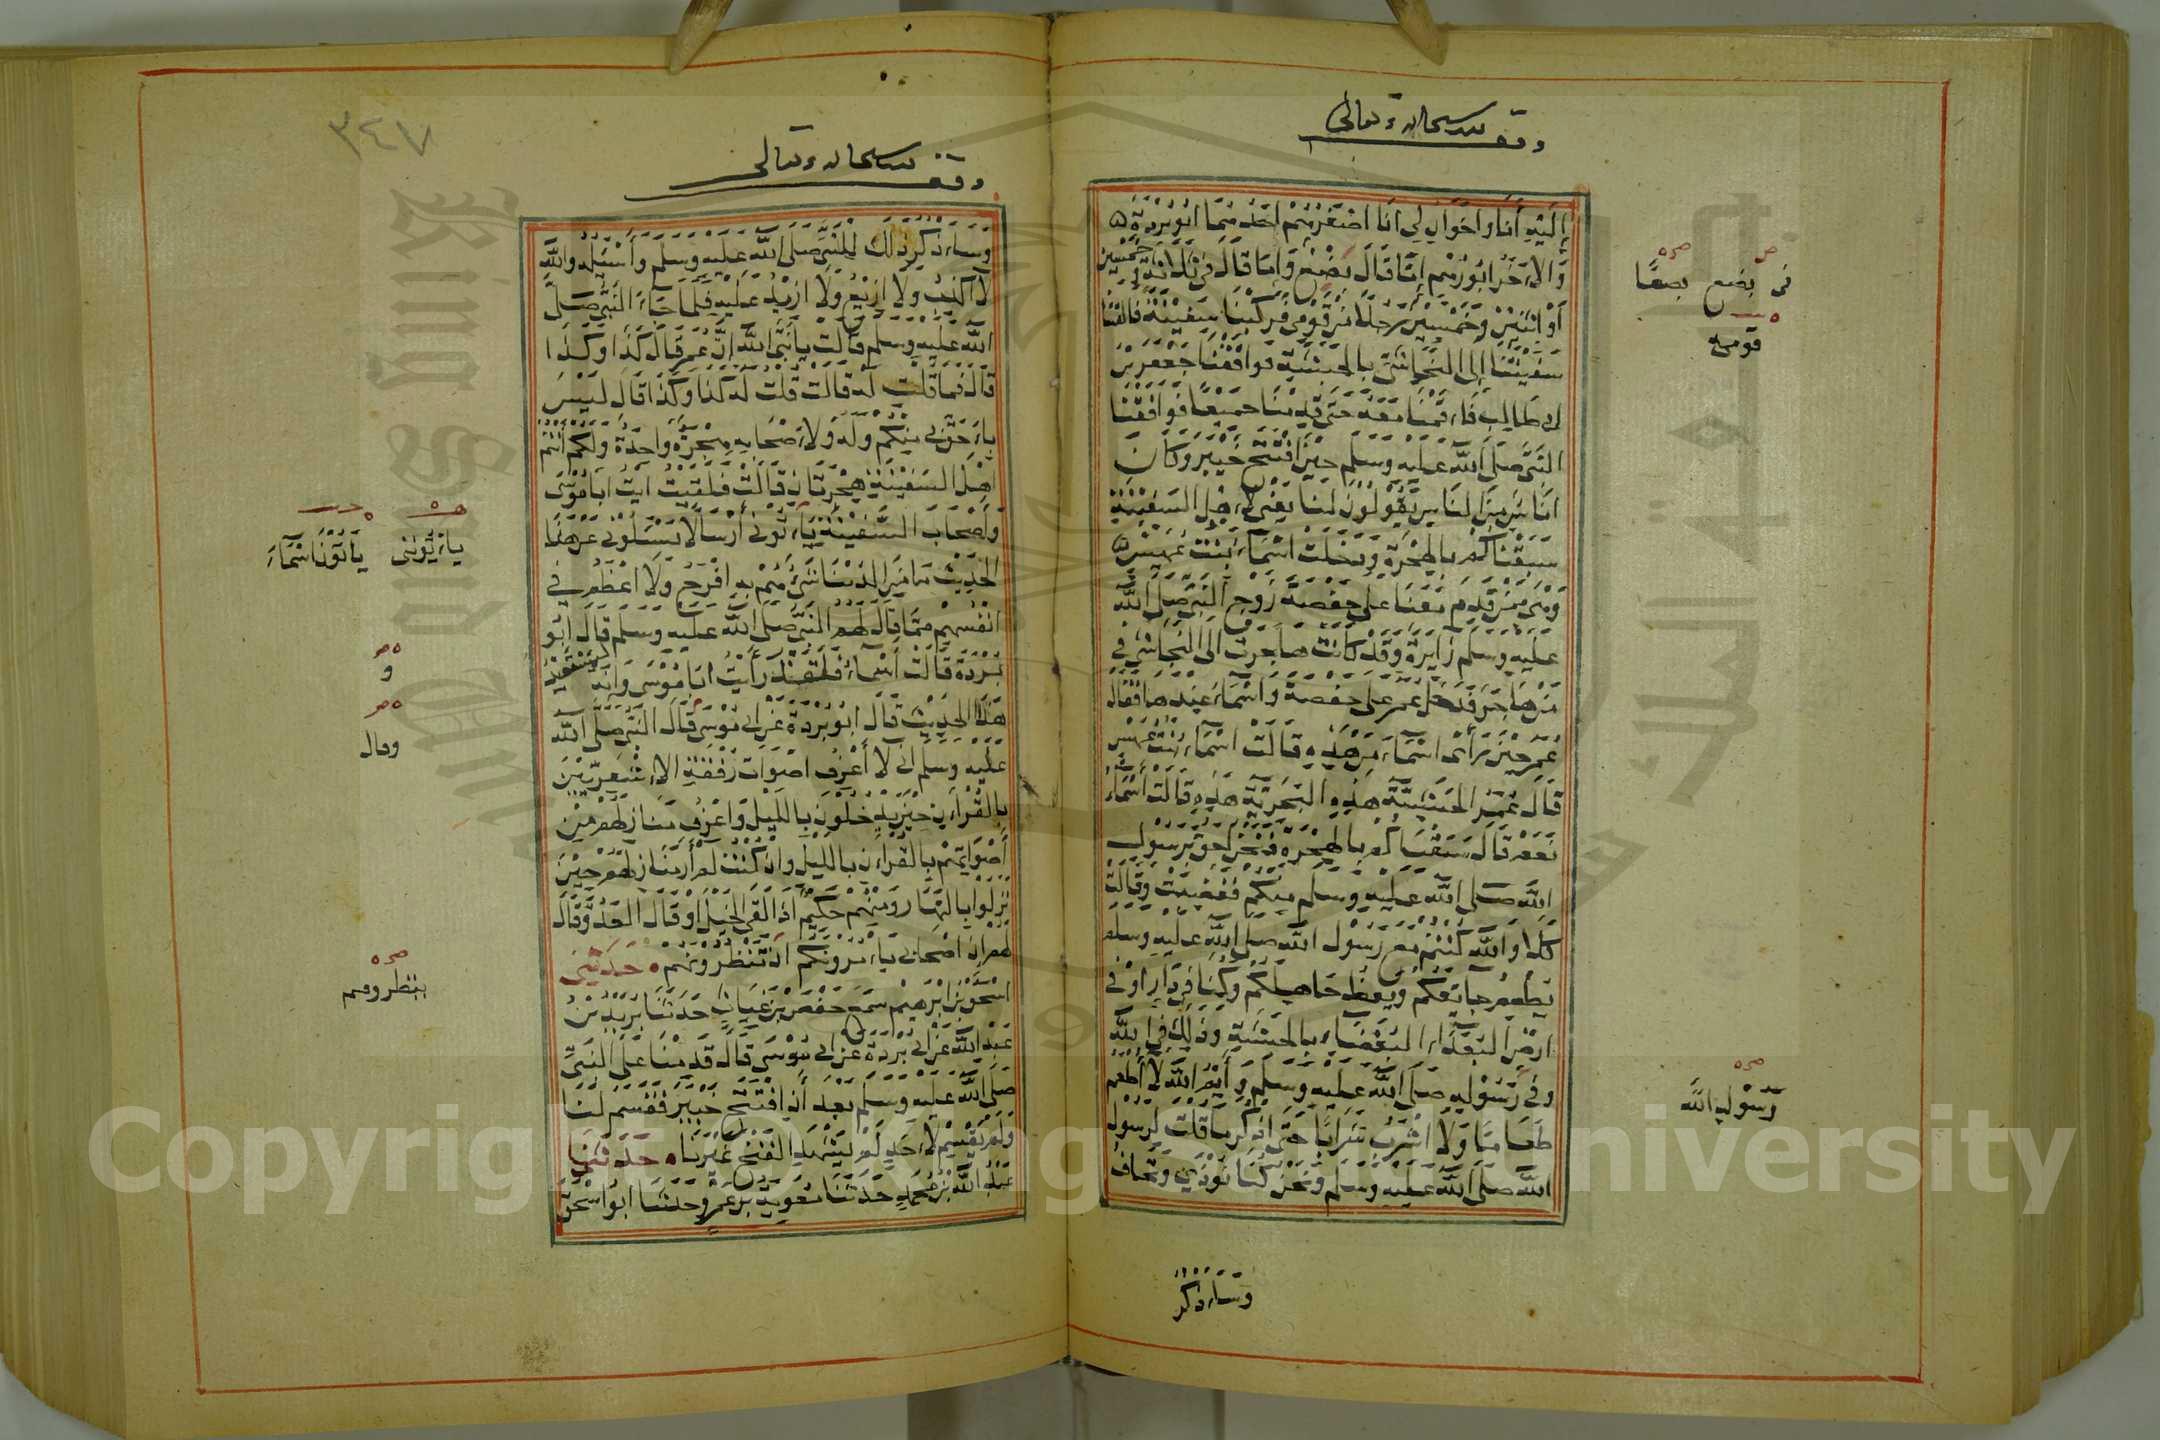 وقف لله سبحانه وتعالى
إِلَيْهِ أَنَا وَأَخَوَانِ لِي أَنَا أَصْغَرُهُمْ أَحَدُهُمَا أَبُو بُرْدَةَ
وَالْآخَرُ أَبُو رُهْمٍ إِمَّا قَالَ بِضْعٌ وَإِمَّا قَالَ فِي ثَلَاثَةٍ وَخَمْسِينَ
أَوْ اثْنَيْنِ وَخَمْسِينَ رَجُلًا مِنْ قَوْمِي فَرَكِبْنَا سَفِينَةً فَأَلْقَتْنَا
سَفِينَتُنَا إِلَى النَّجَاشِيِّ بِالْحَبَشَةِ فَوَافَقْنَا جَعْفَرَ بْنَ
أَبِي طَالِبٍ فَأَقَمْنَا مَعَهُ حَتَّى قَدِمْنَا جَمِيعًا فَوَافَقْنَا
النَّبِيَّ صَلَّى اللَّهُ عَلَيْهِ وَسَلَّمَ حِينَ افْتَتَحَ خَيْبَرَ وَكَانَ
أُنَاسٌ مِنَ النَّاسِ يَقُولُونَ لَنَا يَعْنِي لِأَهْلِ السَّفِينَةِ
سَبَقْنَاكُمْ بِالْهِجْرَةِ وَدَخَلَتْ أَسْمَاءُ بِنْتُ عُمَيْسٍ
وَهْيَ مِمَّنْ قَدِمَ مَعَنَا عَلَى حَفْصَةَ زَوْجِ النَّبِيِّ صَلَّى اللَّهُ
عَلَيْهِ وَسَلَّمَ زَايِرَةً وَقَدْ كَانَتْ هَاجَرَتْ إِلَى النَّجَاشِيِّ فِي
مَنْ هَاجَرَ فَدَخَلَ عُمَرُ عَلَى حَفْصَةَ وَأَسْمَاءُ عِنْدَهَا فَقَالَ
عُمَرُ حِينَ رَأَى أَسْمَاءَ مَنْ هَذِهِ قَالَتْ أَسْمَاءُ بِنْتُ عُمَيْسٍ
قَالَ عُمَرُ الْحَبَشِيَّةُ هَذِهِ الْبَحْرِيَّةُ هَذِهِ قَالَتْ أَسْمَاءُ
نَعَمْ قَالَ سَبَقْنَاكُمْ بِالْهِجْرَةِ فَنَحْنُ أَحَقُّ بِرَسُولِ
اللَّهِ صَلَّى اللَّهُ عَلَيْهِ وَسَلَّمَ مِنْكُمْ فَغَضِبَتْ وَقَالَتْ
كَلَّا وَاللَّهِ كُنْتُمْ مَعَ رَسُولِ اللَّهِ صَلَّى اللَّهُ عَلَيْهِ وَسَلَّمَ
يُطْعِمُ جَائِعَكُمْ وَيَعِظُ جَاهِلَكُمْ وَكُنَّا فِي دَارِ أَوْ فِي
أَرْضِ الْبُعَدَاءِ الْبُغَضَاءِ بِالْحَبَشَةِ وَذَلِكَ فِي اللَّهِ
وَفِي رَسُولِهِ صَلَّى اللَّهُ عَلَيْهِ وَسَلَّمَ وَأَيْمُ اللَّهِ لَا أَطْعَمُ
طَعَامًا وَلَا أَشْرَبُ شَرَابًا حَتَّى أَذْكُرَ مَا قُلْتَ لِرَسُولِ
اللَّهِ صَلَّى اللَّهُ عَلَيْهِ وَسَلَّمَ وَنَحْنُ كُنَّا نُؤْذَى وَنُخَافُ
وَسَأَذْكُرُ
في بضع بضعًا
قومه
رَسُولِ اللَّهِ
وقف لله سبحانه وتعالى
٣٤٧
وَسَأَذْكُرُ ذَلِكَ لِلنَّبِيِّ صَلَّى اللَّهُ عَلَيْهِ وَسَلَّمَ وَأَسْئَلُهُ وَاللَّهِ
لَا أَكْذِبُ وَلَا أَزِيغُ وَلَا أَزِيدُ عَلَيْهِ فَلَمَّا جَاءَ النَّبِيُّ صَلَّى
اللَّهُ عَلَيْهِ وَسَلَّمَ قَالَتْ يَا نَبِيَّ اللَّهِ إِنَّ عُمَرَ قَالَ كَذَا وَكَذَا
قَالَ فَمَا قُلْتِ لَهُ قَالَتْ قُلْتُ لَهُ كَذَا وَكَذَا قَالَ لَيْسَ
بِأَحَقَّ بِي مِنْكُمْ وَلَهُ وَلِأَصْحَابِهِ هِجْرَةٌ وَاحِدَةٌ وَلَكُمْ أَنْتُمْ
أَهْلَ السَّفِينَةِ هِجْرَتَانِ قَالَتْ فَلَقَدْ رَأَيْتُ أَبَا مُوسَى
وَأَصْحَابَ السَّفِينَةِ يَأْتُونِي أَرْسَالًا يَسْئَلُونِي عَنْ هَذَا
الْحَدِيثِ مَا مِنَ الدُّنْيَا شَيْءٌ هُمْ بِهِ أَفْرَحُ وَلَا أَعْظَمُ فِي
أَنْفُسِهِمْ مِمَّا قَالَ لَهُمُ النَّبِيُّ صَلَّى اللَّهُ عَلَيْهِ وَسَلَّمَ قَالَ أَبُو
بُرْدَةَ قَالَتْ أَسْمَاءُ فَلَقَدْ رَأَيْتُ أَبَا مُوسَى وَإِنَّهُ لَيَسْتَعِيدُ
هَذَا الْحَدِيثَ قَالَ أَبُو بُرْدَةَ عَنْ أَبِي مُوسَى قَالَ النَّبِيُّ صَلَّى اللَّهُ
عَلَيْهِ وَسَلَّمَ إِنِّي لَا أَعْرِفُ أَصْوَاتَ رُفْقَةِ الْأَشْعَرِيِّينَ
بِالْقُرْآنِ حِينَ يَدْخُلُونَ بِاللَّيْلِ وَأَعْرِفُ مَنَازِلَهُمْ مِنْ
أَصْوَاتِهِمْ بِالْقُرْآنِ بِاللَّيْلِ وَإِنْ كُنْتُ لَمْ أَرَ مَنَازِلَهُمْ حِينَ
نَزَلُوا بِالنَّهَارِ وَمِنْهُمْ حَكِيمٌ إِذَا لَقِيَ الْخَيْلَ أَوْ قَالَ الْعَدُوَّ قَالَ
لَهُمْ إِنَّ أَصْحَابِي يَأْمُرُونَكُمْ أَنْ تَنْظُرُوهُمْ ه حَدَّثَنِي
إِسْحَقُ بْنُ إِبْرَهِيمَ سَمِعَ حَفْصَ بْنَ غِيَاثٍ حَدَّثَنَا بُرَيْدُ بْنُ
عَبْدِ اللَّهِ عَنْ أَبِي بُرْدَةَ عَنْ أَبِي مُوسَى قَالَ قَدِمْنَا عَلَى النَّبِيِّ
صَلَّى اللَّهُ عَلَيْهِ وَسَلَّمَ بَعْدَ أَنِ افْتَتَحَ خَيْبَرَ فَقَسَمَ لَنَا
وَلَمْ يَقْسِمْ لِأَحَدٍ لَمْ يَشْهَدِ الْفَتْحَ غَيْرَنَا ه حَدَّثَنِي
عَبْدُ اللَّهِ بْنُ مُحَمَّدٍ حَدَّثَنَا مُعَوِيَةُ بْنُ عَمْرٍو حَدَّثَنَا أَبُو إِسْحَقَ
يأتونني يَأْتُونَ أَسْمَاءَ
و
وقال
ينتظروهم
Copyright © King Saud University